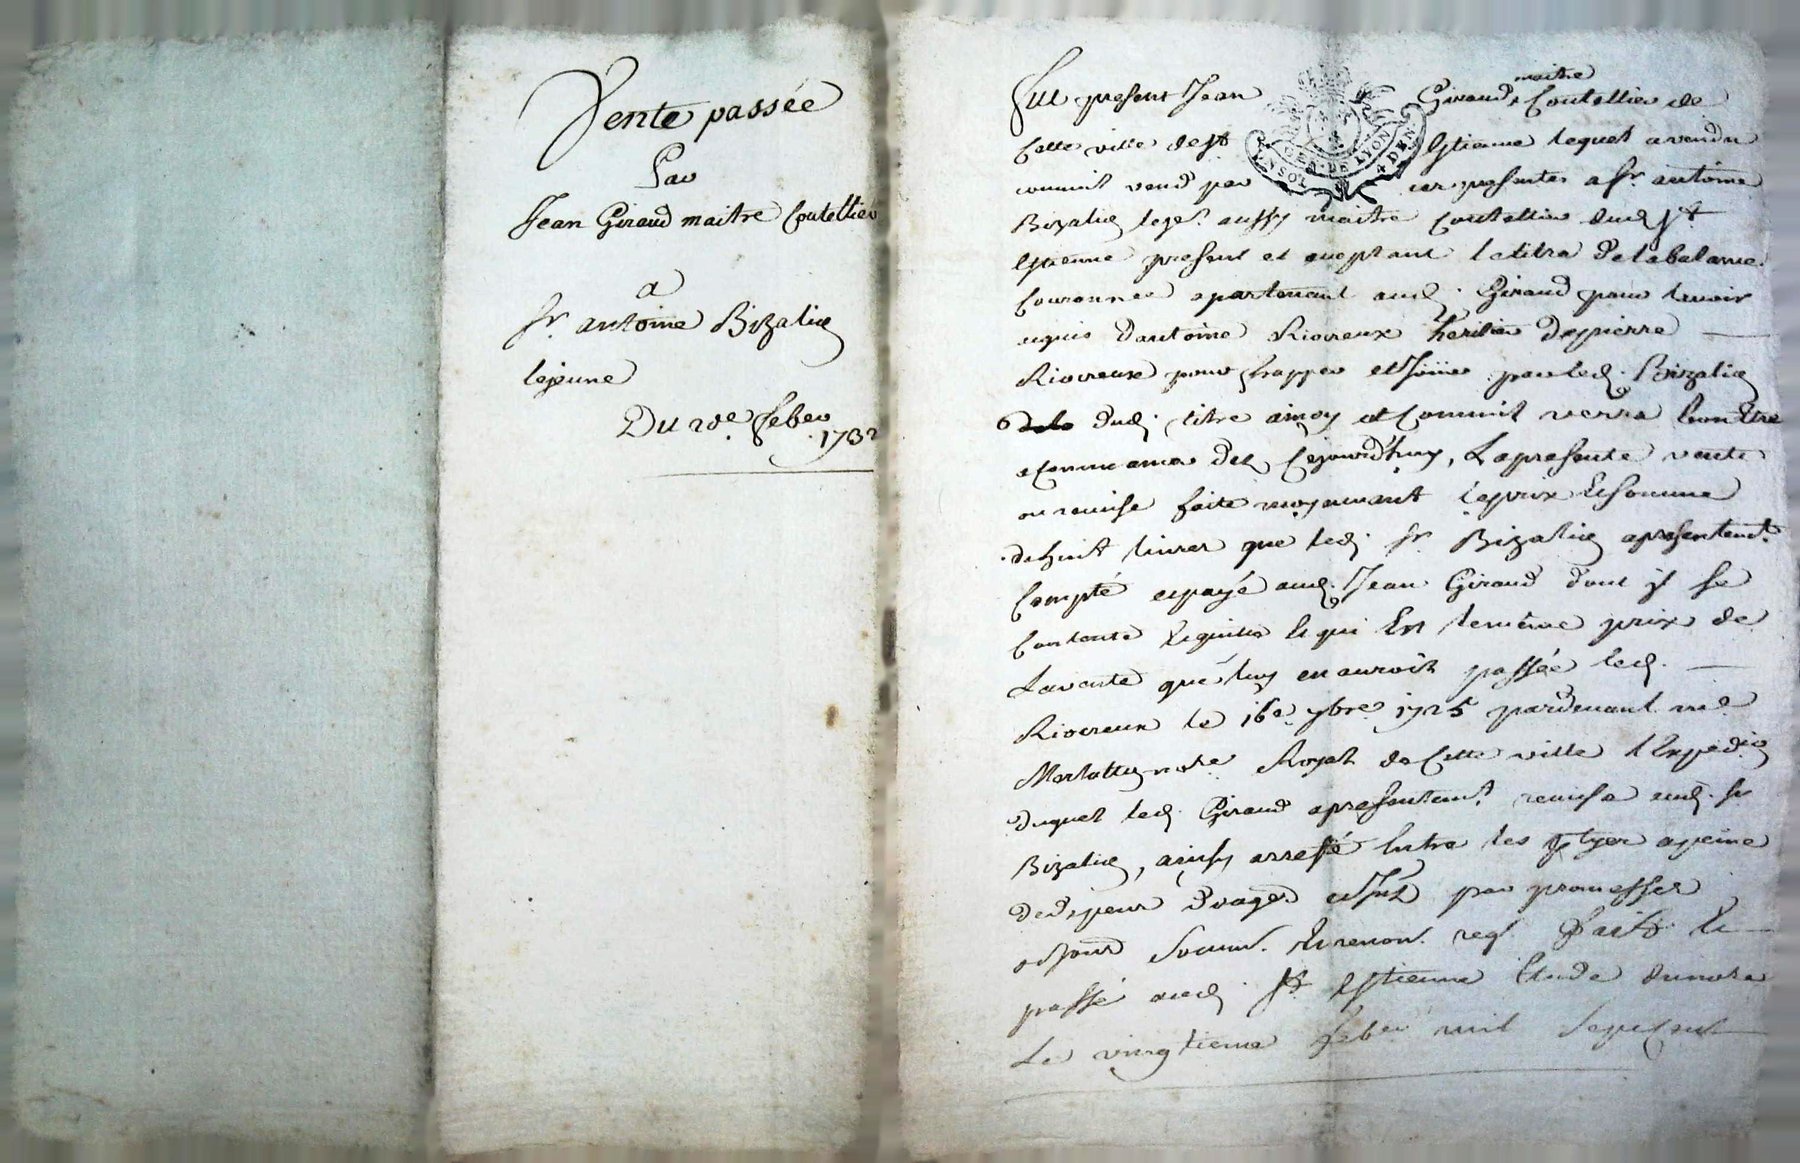 Vente passée
Par
Jean Giraud maitre Coutellier
a
Sr. antoine Bizalion
lejeune
Du 20e. feber
1732
maitre
Fut present Jean Giraud, Coutellier de
Cette ville de St Estienne lequel a vendu
comme vend par ces presentes a Sr. antoine
Bizalion leje. aussy maitre Coutellier dud. St
Estienne present et aceptant le titre de la balance
Couronnée apartenant aud. Giraud pour lavoir
aquis dantoine Rivoreux heritier depierre
Rivoreux pour frapper et par led. Bizalion
dud. titre ainsy et Comme verra bon etre
a Commancer dez Cejourdhuy, La presente vente
ou remise faite moyenant leprix et somme
de huit livres que led. Sr. Bizalion apresentemt.
Compté et payé aud. Jean Giraud dont il se
Contente et quitte et qui Est lemême prix de
Lavente que luy en auroit passée led.
Rivoreux le 16e. 7bre. 1725 pardevant me.
notre. Royal de Cette ville l'Expedion
duquel led. Giraud apresentemt. remise aud. Sr
Bizalion, ainsy aresté Entre les ptyes apeine
de depens et par promesses
Et renon. Fait et
passé aud. St. Estienne Etude du notre
Le vingtieme feber mil sept cent
TIMBRE
GEN. DE LYON
4 DEN